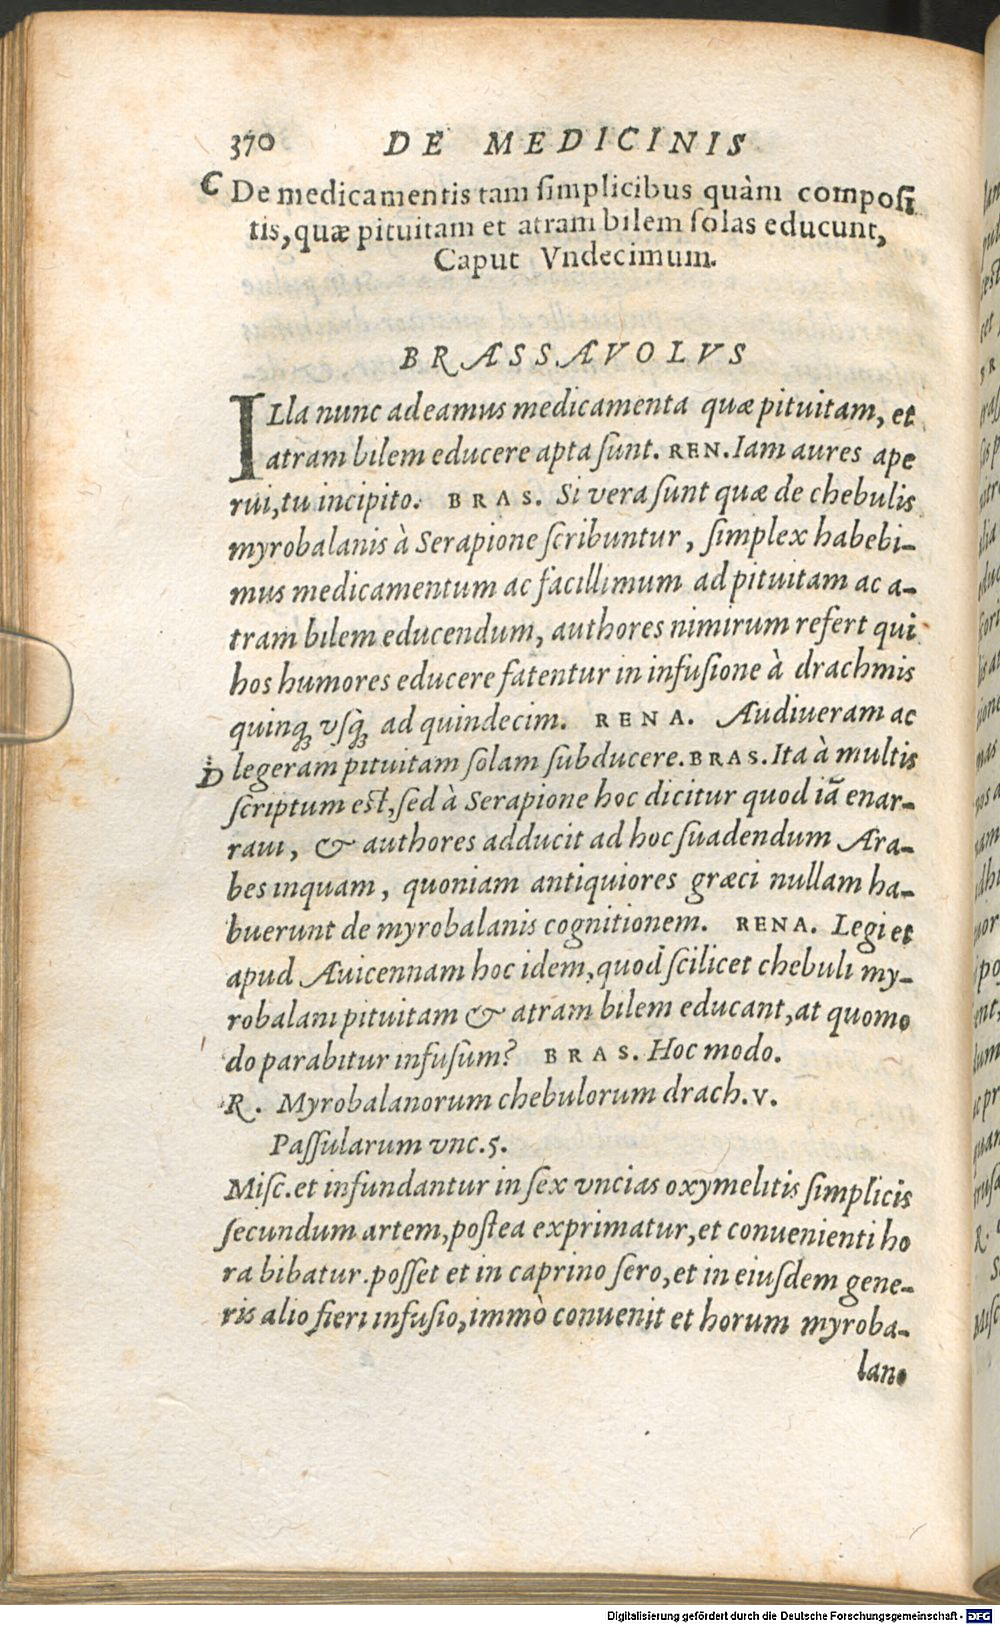 370 DE MEDICINIS
C De medicamentis tam simplicibus quàm composi-
tis, quæ pituitam et atram bilem solas educunt,
Caput Vndecimum.
BRASSAVOLVS
ILla nunc adeamus medicamenta quæ pituitam, et
atram bilem educere apta sunt. REN. Iam aures ape
rui, tu incipito. BRAS. Si vera sunt quæ de chebulis
myrobalanis à Serapione scribuntur, simplex habebi-
mus medicamentum ac facillimum ad pituitam ac a-
tram bilem educendum, authores nimirum refert qui
hos humores educere fatentur in infusione à drachmis
quinq; vsq; ad quindecim. RENA. Audiueram ac
D legeram pituitam solam subducere. BRAS. Ita à multis
scriptum est, sed à Serapione hoc dicitur quod iã enar-
raui, & authores adducit ad hoc suadendum Ara-
bes inquam, quoniam antiquiores græci nullam ha-
buerunt de myrobalanis cognitionem. RENA. Legi et
apud Auicennam hoc idem, quod scilicet chebuli my-
robalani pituitam & atram bilem educant, at quomo
do parabitur infusum? BRAS. Hoc modo.
R. Myrobalanorum chebulorum drach. v.
Passularum vnc. 5.
Misc. et infundantur in sex vncias oxymelitis simplicis
secundum artem, postea exprimatur, et conuenienti ho
ra bibatur. posset et in caprino sero, et in eiusdem gene-
ris alio fieri infusio, immò conuenit et horum myroba-
lano
Digitalisierung gefördert durch die Deutsche Forschungsgemeinschaft - DFG